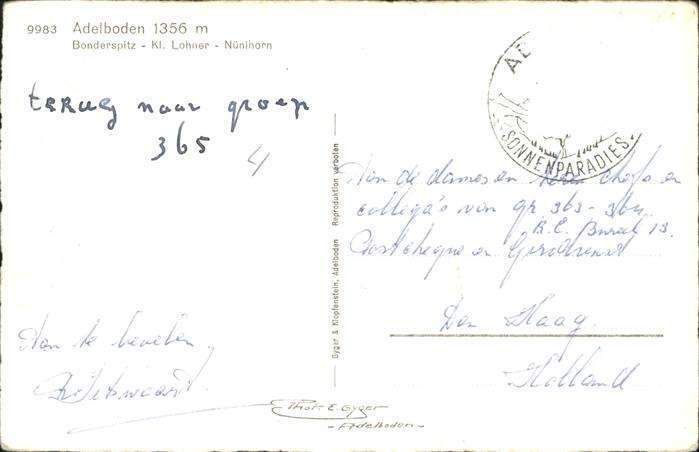 9983 Adelboden 1356 m
Bonderspitz - Kl. Lohner - Nünihorn
terug naar groep
365
4
Aan te bevelen,
Gyger & Klopfenstein, Adelboden Reproduktion verboten
AD
SONNENPARADIES
Aan de dames en heren chefs en
collega's van gr. 363 - 364
B.E. Bureel 13.
en Girodienst
Den Haag.
Holland
Phot. E. Gyger
- Adelboden -